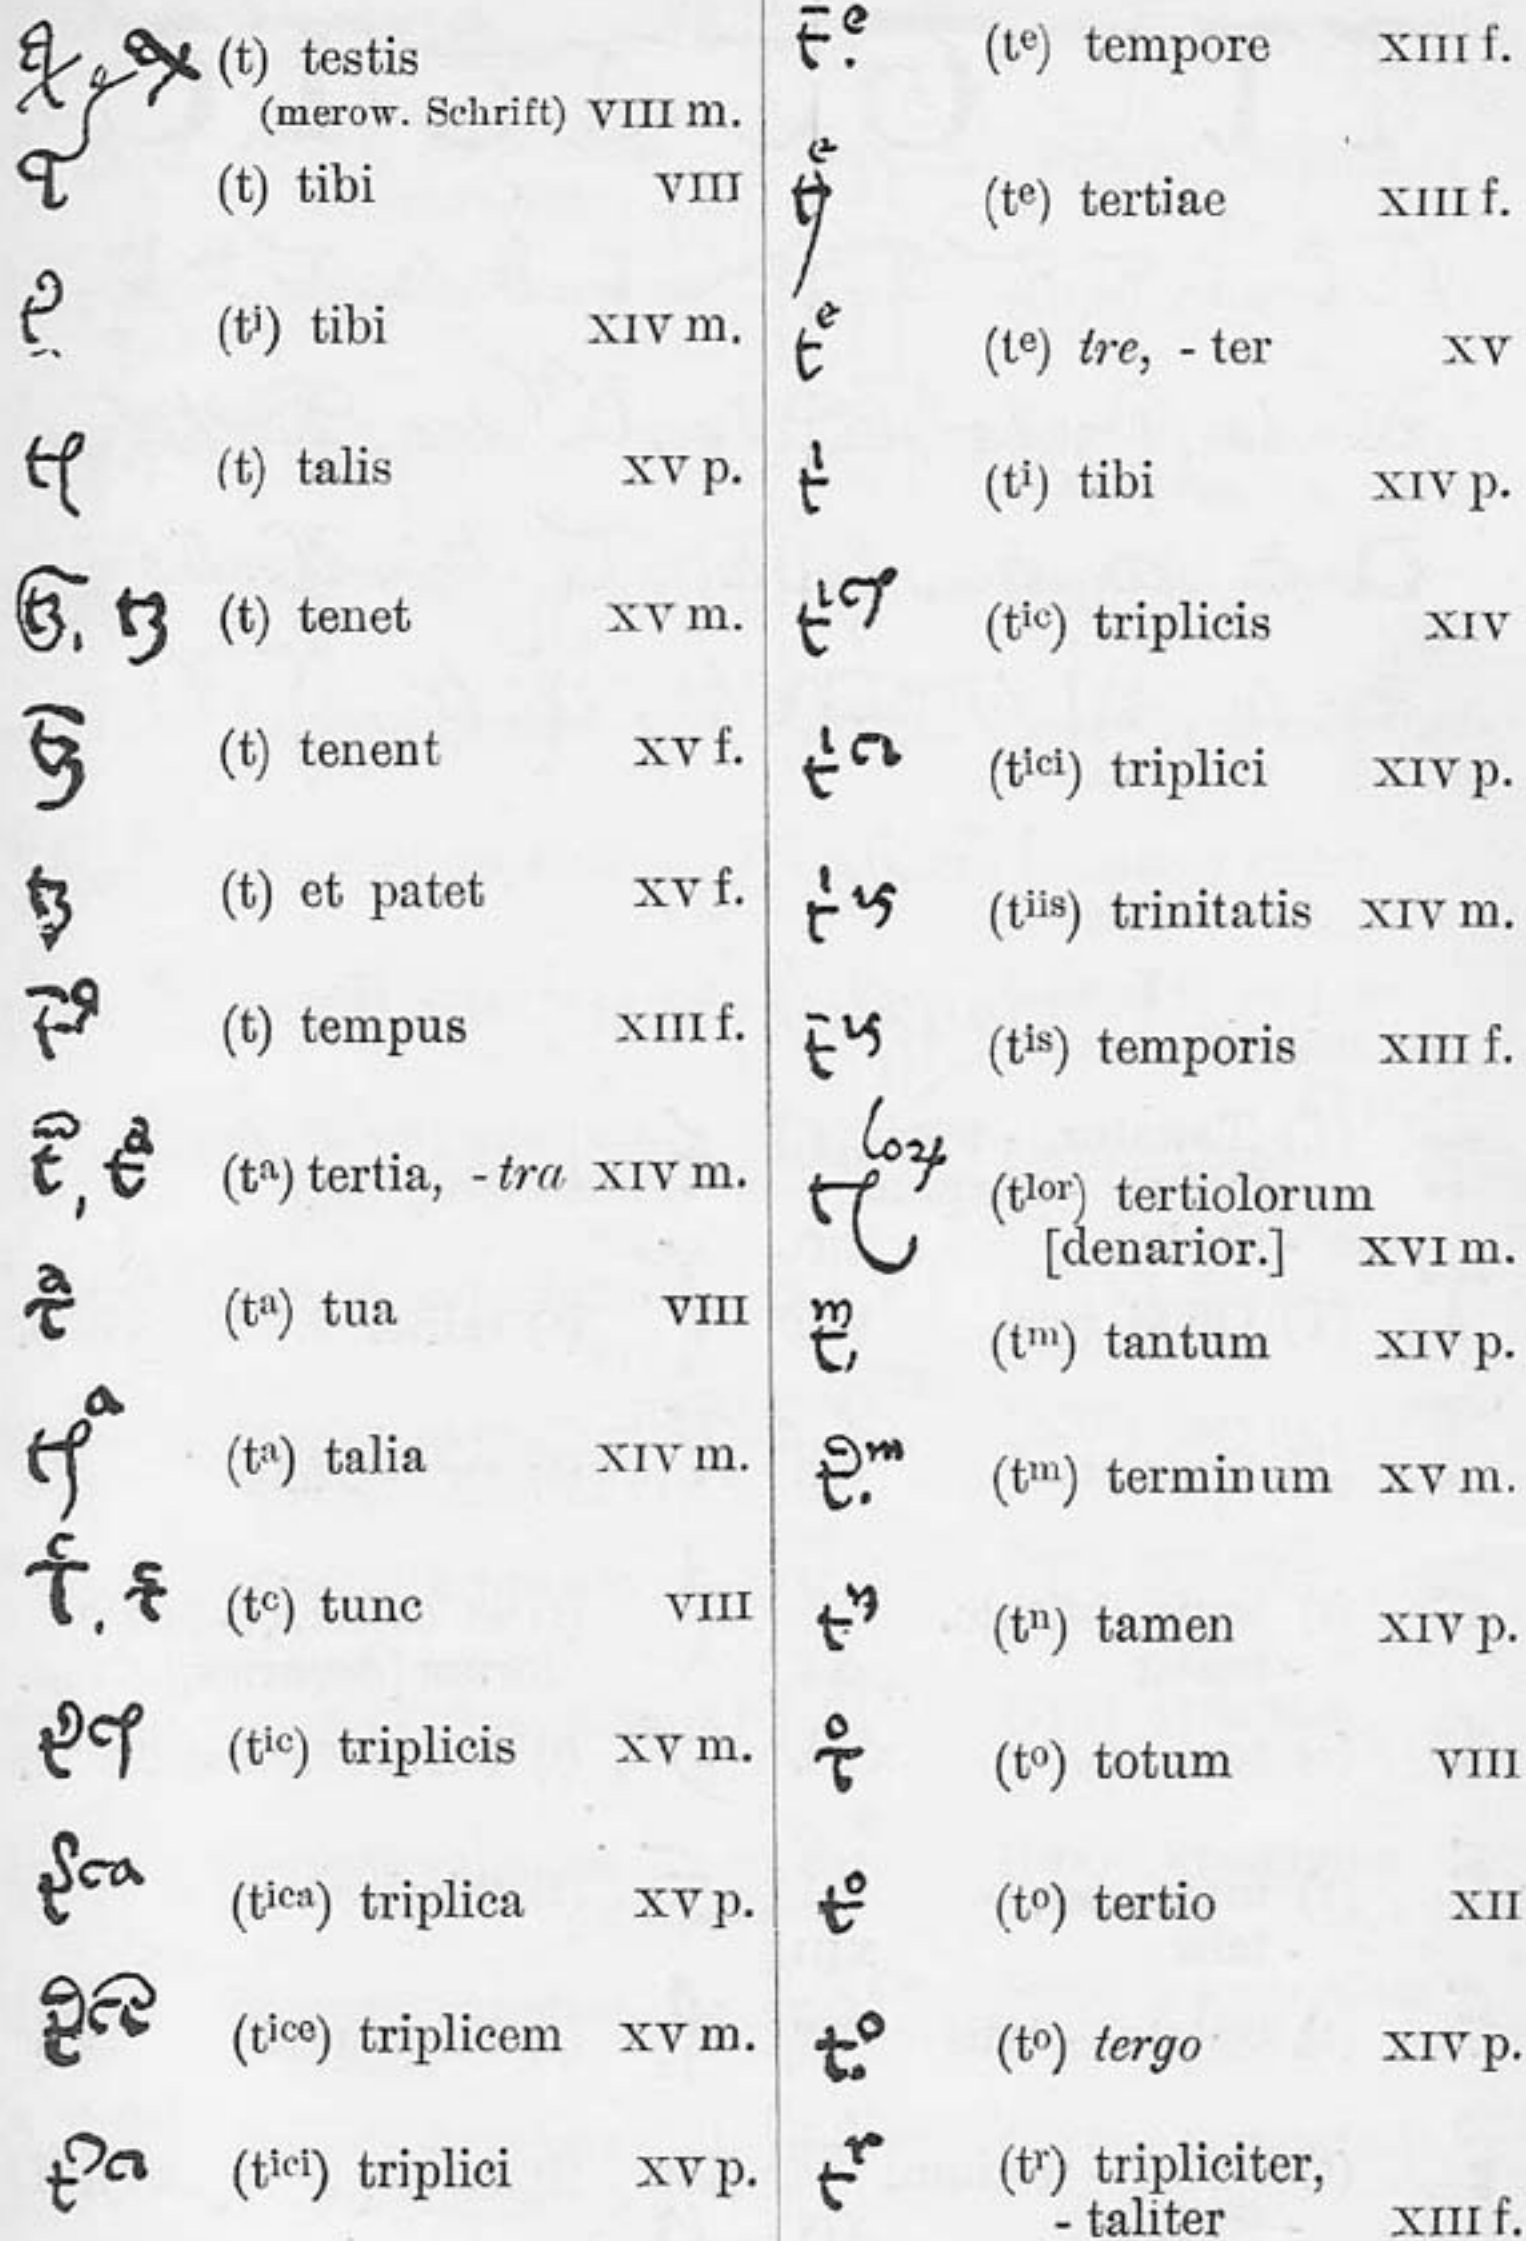 (t) testis
(merow. Schrift) VIII m.
(t) tibi VIII
(tʲ) tibi XIV m.
(t) talis XV p.
(t) tenet XV m.
(t) tenent XV f.
(t) et patet XV f.
(t) tempus XIII f.
(tᵃ) tertia, -tra XIV m.
(tᵃ) tua VIII
(tᵃ) talia XIV m.
(tᶜ) tunc VIII
(tⁱᶜ) triplicis XV m.
(tⁱᶜᵃ) triplica XV p.
(tⁱᶜᵉ) triplicem XV m.
(tⁱᶜⁱ) triplici XV p.
(tᵉ) tempore XIII f.
(tᵉ) tertiae XIII f.
(tᵉ) tre, - ter XV
(tⁱ) tibi XIV p.
(tⁱᶜ) triplicis XIV
(tⁱᶜⁱ) triplici XIV p.
(tⁱⁱˢ) trinitatis XIV m.
(tⁱˢ) temporis XIII f.
(tˡᵒʳ) tertiolorum
[denarior.] XVI m.
(tᵐ) tantum XIV p.
(tᵐ) terminum XV m.
(tⁿ) tamen XIV p.
(tᵒ) totum VIII
(tᵒ) tertio XII
(tᵒ) tergo XIV p.
(tʳ) tripliciter,
- taliter XIII f.